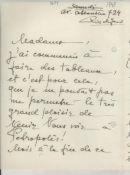 Samedi
av. Atlantica 724
Madame,
j'ai commencé à
faire des tableaux,
et c'est pour cela,
que je ne pouvait pas
me permettre le très
grand plaisir de
venir Vous voir à
Petropolis.
Mais à la fin de ce